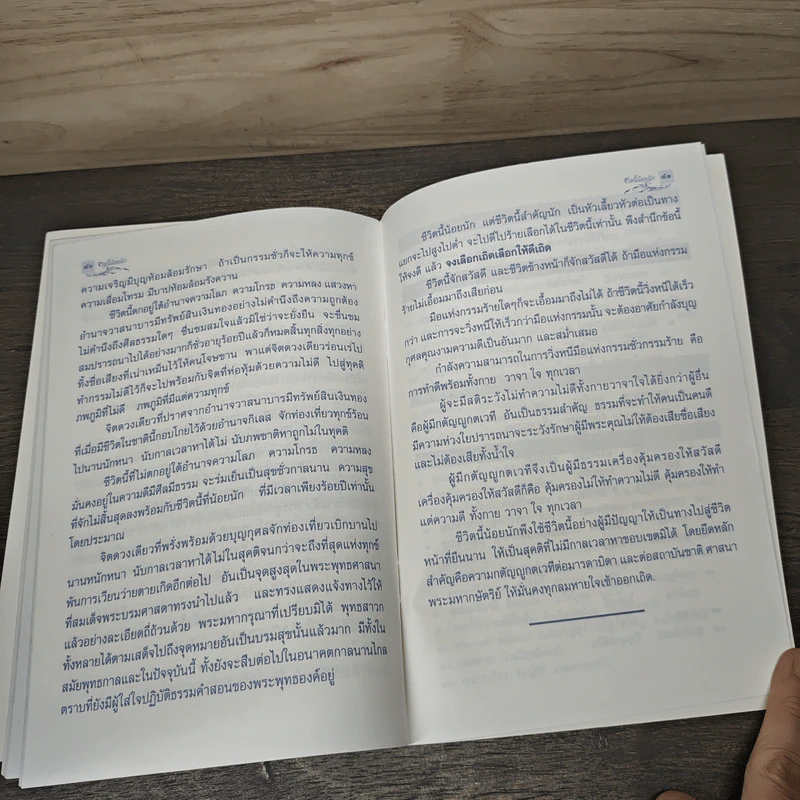 ๘๐ ชีวิตนี้น้อยนัก
ความเจริญมีบุญห้อมล้อมรักษา ถ้าเป็นกรรมชั่วก็จะให้ความทุกข์
ความเสื่อมโทรม มีบาปห้อมล้อมรังควาน
ชีวิตนี้ตกอยู่ใต้อำนาจความโลภ ความโกรธ ความหลง แสวงหา
อำนาจวาสนาบารมีทรัพย์สินเงินทองอย่างไม่คำนึงถึงความถูกต้อง
ไม่คำนึงถึงศีลธรรมใดๆ ชื่นชมสมใจแล้วมิใช่ว่าจะยั่งยืน จะชื่นชม
สมปรารถนาไปได้อย่างมากก็ชั่วอายุร้อยปีแล้วก็หมดสิ้นทุกสิ่งทุกอย่าง
ทิ้งชื่อเสียงที่เน่าเหม็นไว้ให้คนโจษขาน พาแต่จิตดวงเดียวร่อนเร่ไป
ทำกรรมไม่ดีไว้ก็จะไปพร้อมกับจิตที่ห่อหุ้มด้วยความไม่ดี ไปสู่ทุคติ
ภพภูมิที่ไม่ดี ภพภูมิที่มีแต่ความทุกข์
จิตดวงเดียวที่ปราศจากอำนาจวาสนาบารมีทรัพย์สินเงินทอง
ที่เมื่อมีชีวิตในชาตินี้กอบโกยไว้ด้วยอำนาจกิเลส จักท่องเที่ยวทุกข์ร้อน
ไปนานนักหนา นับกาลเวลาหาได้ไม่ นับภพชาติหาถูกไม่ในทุคติ
ชีวิตนี้ที่ไม่ตกอยู่ใต้อำนาจความโลภ ความโกรธ ความหลง
มั่นคงอยู่ในความดีมีศีลมีธรรม จะร่มเย็นเป็นสุขชั่วกาลนาน ความสุข
ที่จักไม่สิ้นสุดลงพร้อมกับชีวิตนี้ที่น้อยนัก ที่มีเวลาเพียงร้อยปีเท่านั้น
โดยประมาณ
จิตดวงเดียวที่พรั่งพร้อมด้วยบุญกุศลจักท่องเที่ยวเบิกบานไป
นานหนักหนา นับกาลเวลาหาได้ไม่ในสุคติจนกว่าจะถึงที่สุดแห่งทุกข์
พ้นการเวียนว่ายตายเกิดอีกต่อไป อันเป็นจุดสูงสุดในพระพุทธศาสนา
ที่สมเด็จพระบรมศาสดาทรงนำไปแล้ว และทรงแสดงแจ้งทางไว้ให้
แล้วอย่างละเอียดถี่ถ้วนด้วย พระมหากรุณาที่เปรียบมิได้ พุทธสาวก
ทั้งหลายได้ตามเสด็จไปถึงจุดหมายอันเป็นบรมสุขนั้นแล้วมาก มีทั้งใน
สมัยพุทธกาลและในปัจจุบันนี้ ทั้งยังจะสืบต่อไปในอนาคตกาลนานไกล
ตราบที่ยังมีผู้ใส่ใจปฏิบัติธรรมคำสอนของพระพุทธองค์อยู่
ชีวิตนี้น้อยนัก ๘๑
ชีวิตนี้น้อยนัก แต่ชีวิตนี้สำคัญนัก เป็นหัวเลี้ยวหัวต่อเป็นทาง
แยกจะไปสูงไปต่ำ จะไปดีไปร้ายเลือกได้ในชีวิตนี้เท่านั้น พึงสำนึกข้อนี้
ให้จงดี แล้ว จงเลือกเถิดเลือกให้ดีเถิด
ชีวิตนี้จักสวัสดี และชีวิตข้างหน้าก็จักสวัสดีได้ ถ้ามือแห่งกรรม
ร้ายไม่เอื้อมมาถึงเสียก่อน
มือแห่งกรรมร้ายใดๆก็จะเอื้อมมาถึงไม่ได้ ถ้าชีวิตนี้วิ่งหนีได้เร็ว
กว่า และการจะวิ่งหนีให้เร็วกว่ามือแห่งกรรมนั้น จะต้องอาศัยกำลังบุญ
กุศลคุณงามความดีเป็นอันมาก และสม่ำเสมอ
กำลังความสามารถในการวิ่งหนีมือแห่งกรรมชั่วกรรมร้าย คือ
การทำดีพร้อมทั้งกาย วาจา ใจ ทุกเวลา
ผู้จะมีสติระวังไม่ทำความไม่ดีทั้งกายวาจาใจได้ยิ่งกว่าผู้อื่น
คือผู้มีกตัญญูกตเวที อันเป็นธรรมสำคัญ ธรรมที่จะทำให้คนเป็นคนดี
มีความห่วงใยปรารถนาจะระวังรักษาผู้มีพระคุณไม่ให้ต้องเสียชื่อเสียง
และไม่ต้องเสียทั้งน้ำใจ
ผู้มีกตัญญูกตเวทีจึงเป็นผู้มีธรรมเครื่องคุ้มครองให้สวัสดี
เครื่องคุ้มครองให้สวัสดีก็คือ คุ้มครองไม่ให้ทำความไม่ดี คุ้มครองให้ทำ
แต่ความดี ทั้งกาย วาจา ใจ ทุกเวลา
ชีวิตนี้น้อยนักพึงใช้ชีวิตนี้อย่างผู้มีปัญญาให้เป็นทางไปสู่ชีวิต
หน้าที่ยืนนาน ให้เป็นสุคติที่ไม่มีกาลเวลาหาขอบเขตมิได้ โดยยึดหลัก
สำคัญคือความกตัญญูกตเวทีต่อมารดาบิดา และต่อสถาบันชาติ ศาสนา
พระมหากษัตริย์ ให้มั่นคงทุกลมหายใจเข้าออกเถิด.